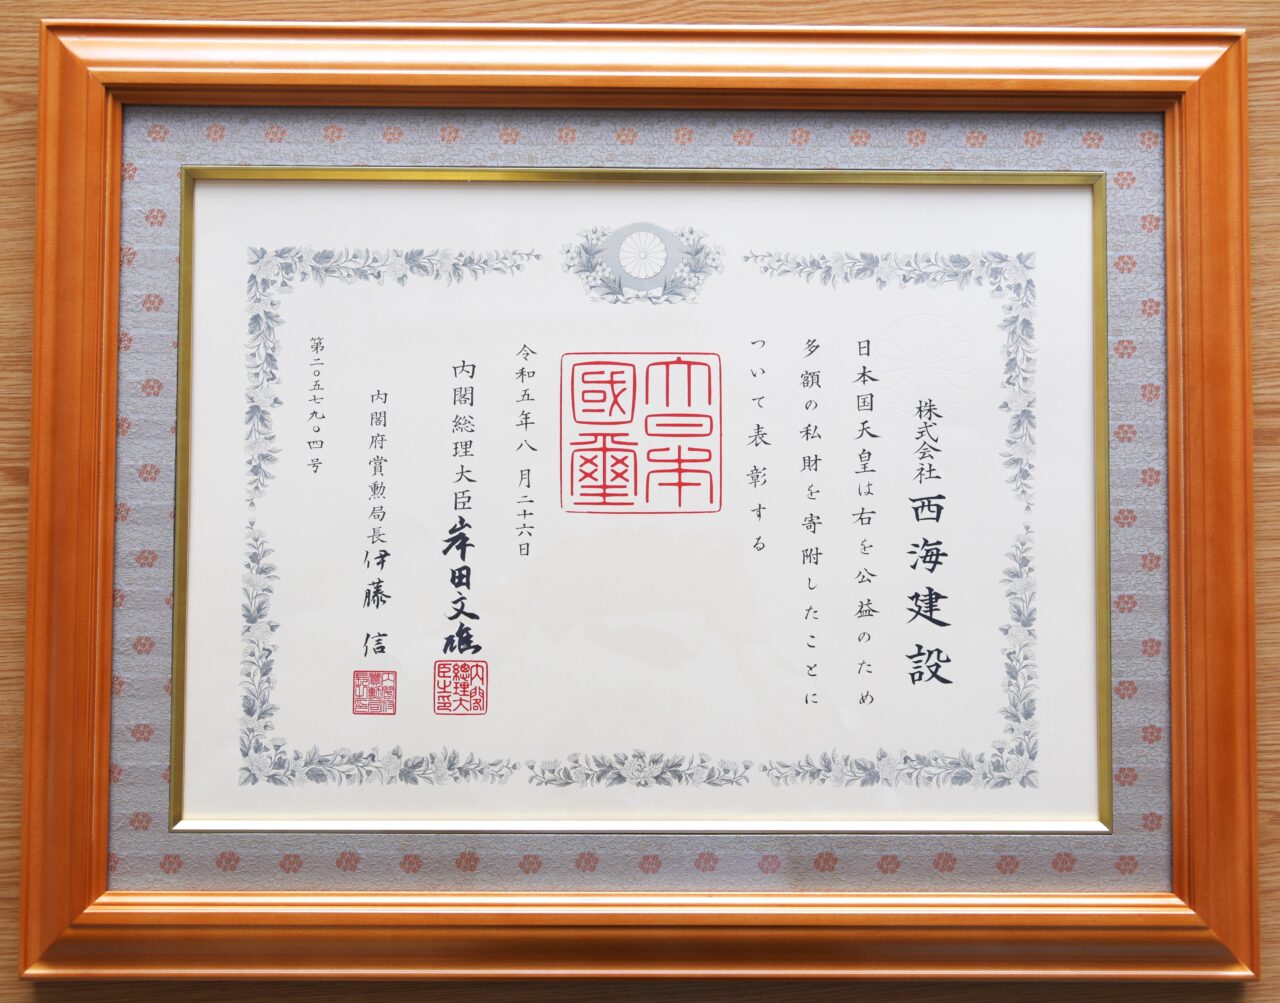 株式会社 西海建設
日本国天皇は右を公益のため
多額の私財を寄附したことに
ついて表彰する
大日本
國璽
令和五年八月二十六日
内閣総理大臣 岸田文雄
内閣総理大臣之印
内閣府賞勲局長 伊藤 信
第二〇五七九〇四号